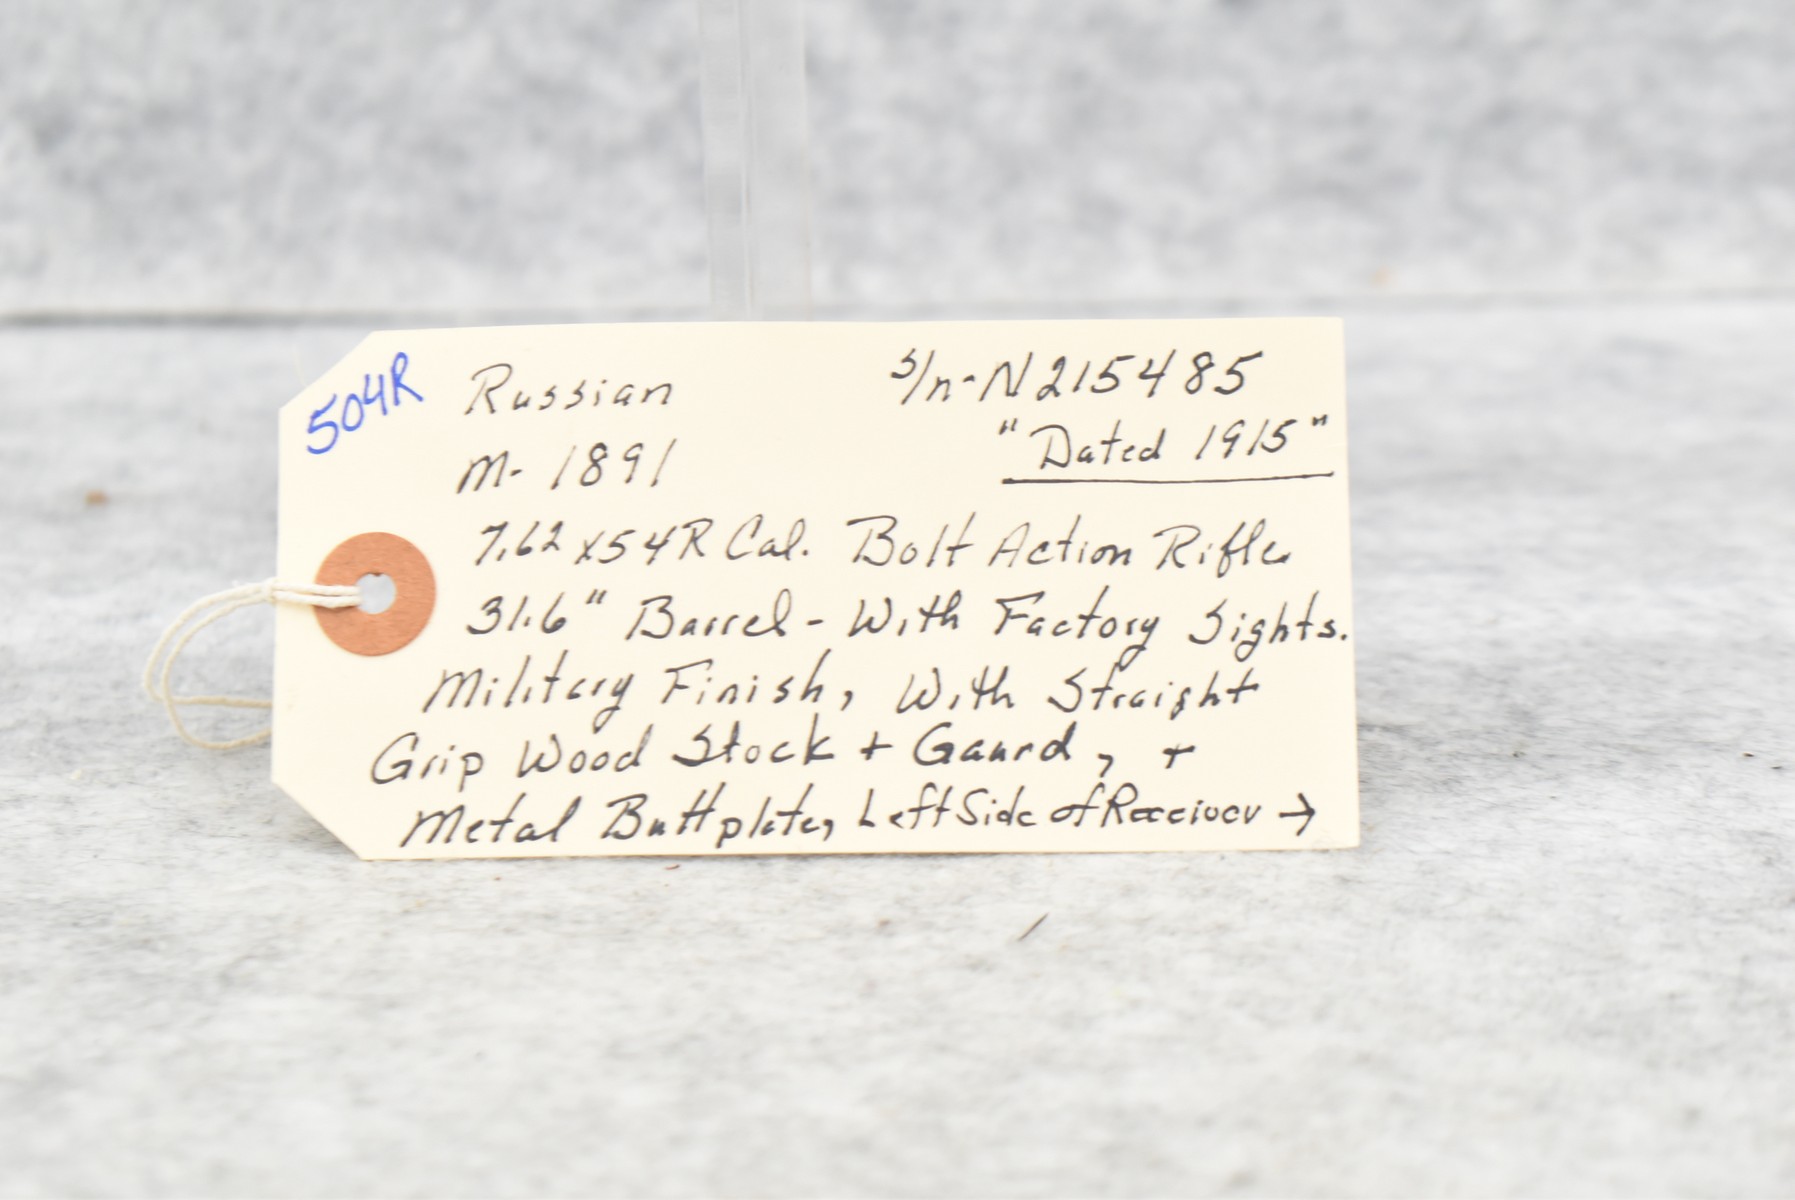 504R
Russian
S/n-N215485
M-1891
"Dated 1915"
7.62x54R Cal. Bolt Action Rifle
31.6" Barrel - With Factory Sights.
Military Finish, With Straight
Grip Wood Stock + Gaurd, +
Metal Buttplate, Left Side of Receiver →